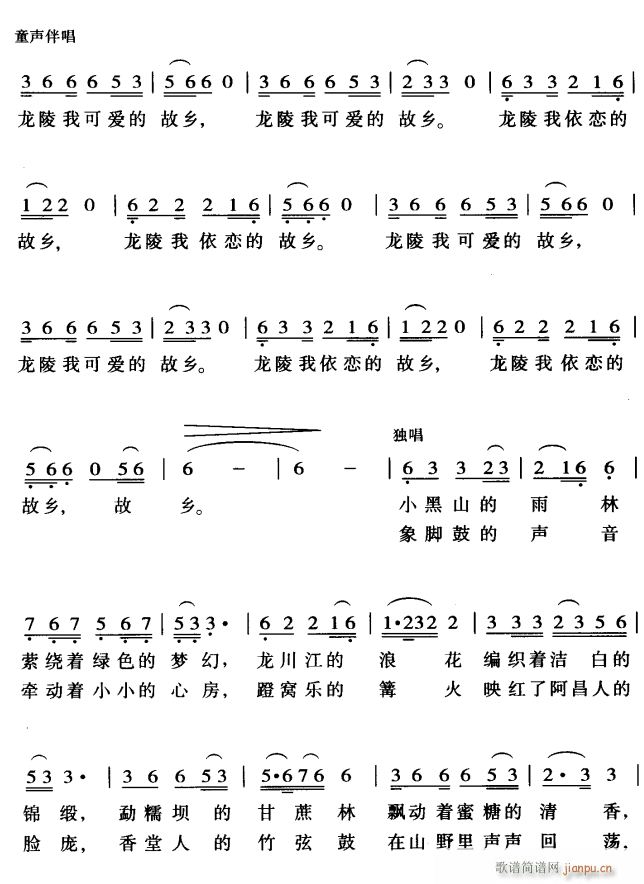 童声伴唱
3 6 6 6 5 3 | 5 6 6 0 | 3 6 6 6 5 3 | 2 3 3 0 | 6 3 3 2 1 6 |
龙陵我可爱的 故乡, 龙陵我可爱的 故乡。 龙陵我依恋的
1 2 2 0 | 6 2 2 2 1 6 | 5 6 6 0 | 3 6 6 6 5 3 | 5 6 6 0 |
故乡, 龙陵我依恋的 故乡。 龙陵我可爱的 故乡,
3 6 6 6 5 3 | 2 3 3 0 | 6 3 3 2 1 6 | 1 2 2 0 | 6 2 2 2 1 6 |
龙陵我可爱的 故乡。 龙陵我依恋的 故乡, 龙陵我依恋的
独唱
5 6 6 0 5 6 | 6 - | 6 - | 6 3 3 2 3 | 2 1 6 6 |
故乡, 故 乡。 小黑山的 雨 林
象脚鼓的 声 音
7 6 7 5 6 7 | 5 3 3· | 6 2 2 1 6 | 1·2 3 2 2 | 3 3 3 2 3 5 6 |
萦绕着绿色的 梦幻, 龙川江的 浪 花 编织着洁白的
牵动着小小的 心房, 蹬窝乐的 篝 火 映红了阿昌人的
5 3 3· | 3 6 6 5 3 | 5·6 7 6 6 | 3 6 6 6 5 3 | 2· 3 3 |
锦缎, 勐糯坝的 甘蔗林 飘动着蜜糖的 清 香,
脸庞, 香堂人的 竹弦鼓 在山野里声声 回 荡,
歌谱简谱网
jianpu.cn